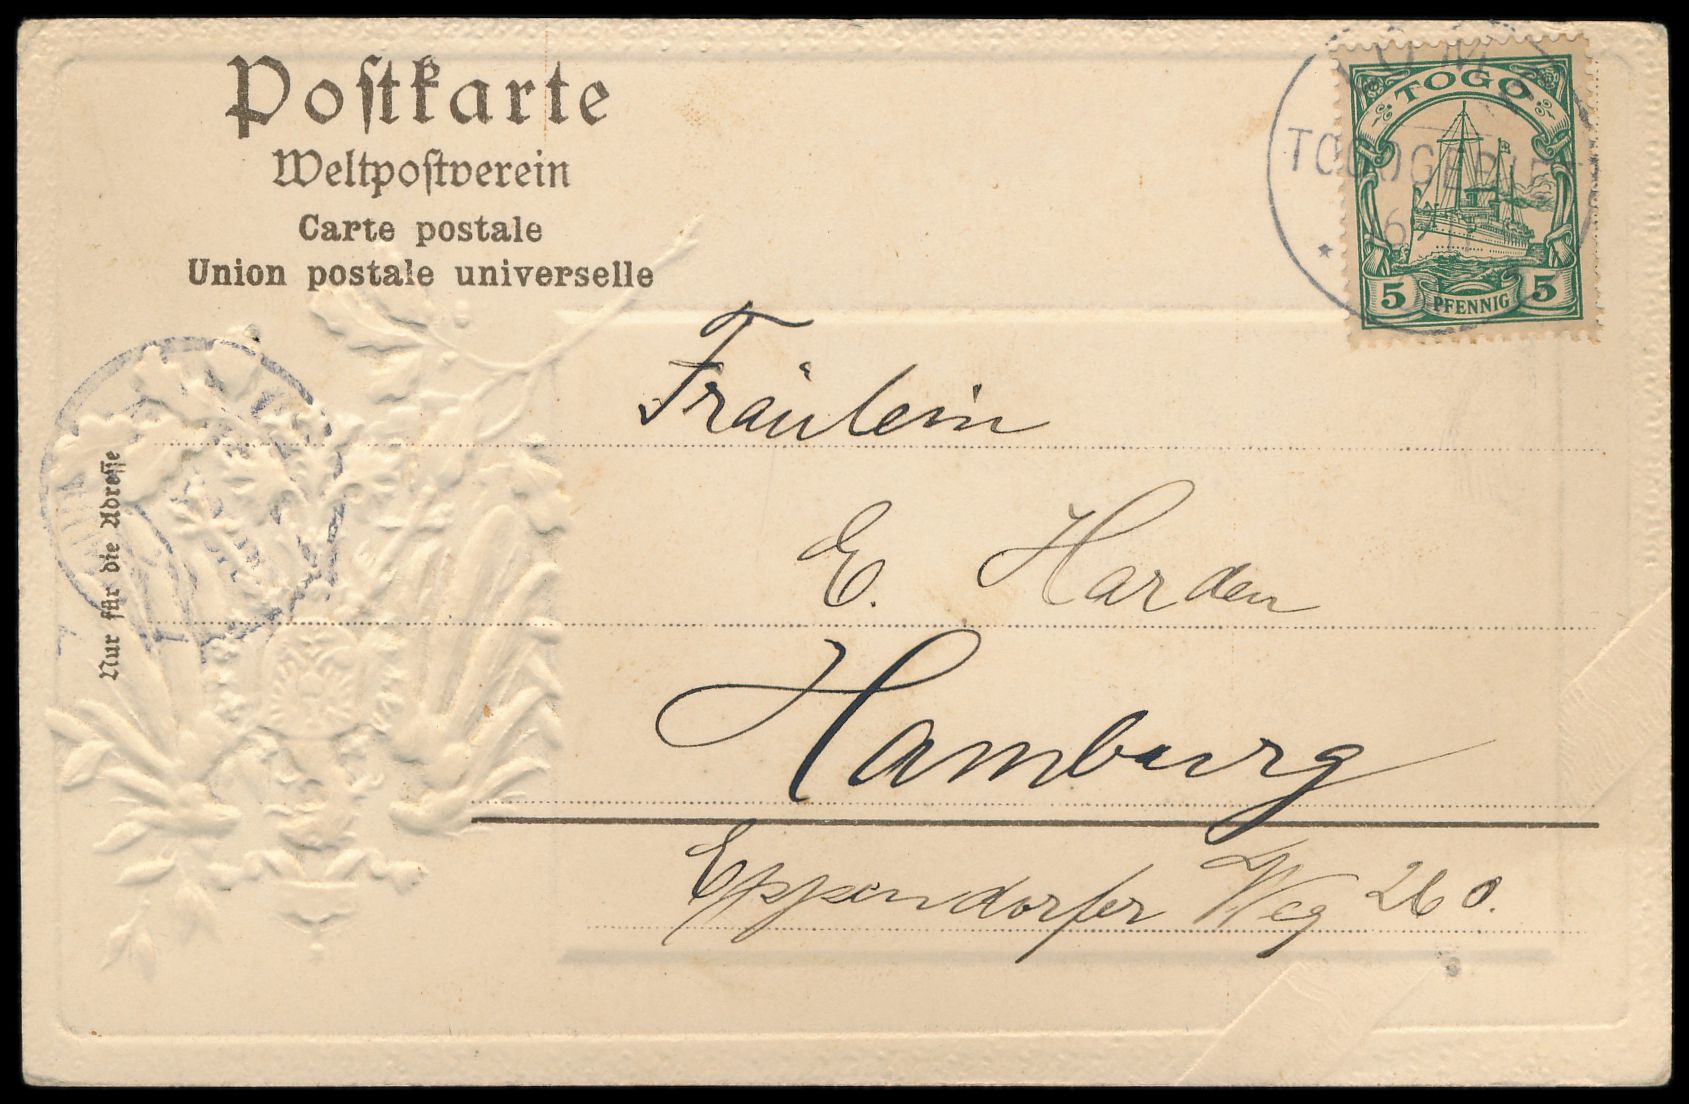 Postkarte
Weltpostverein
Carte postale
Union postale universelle
TOGO
5 PFENNIG 5
TOGOGEBIET
Nur für die Adresse
Fräulein
E. Harden
Hamburg
Eppendorfer Weg 260.